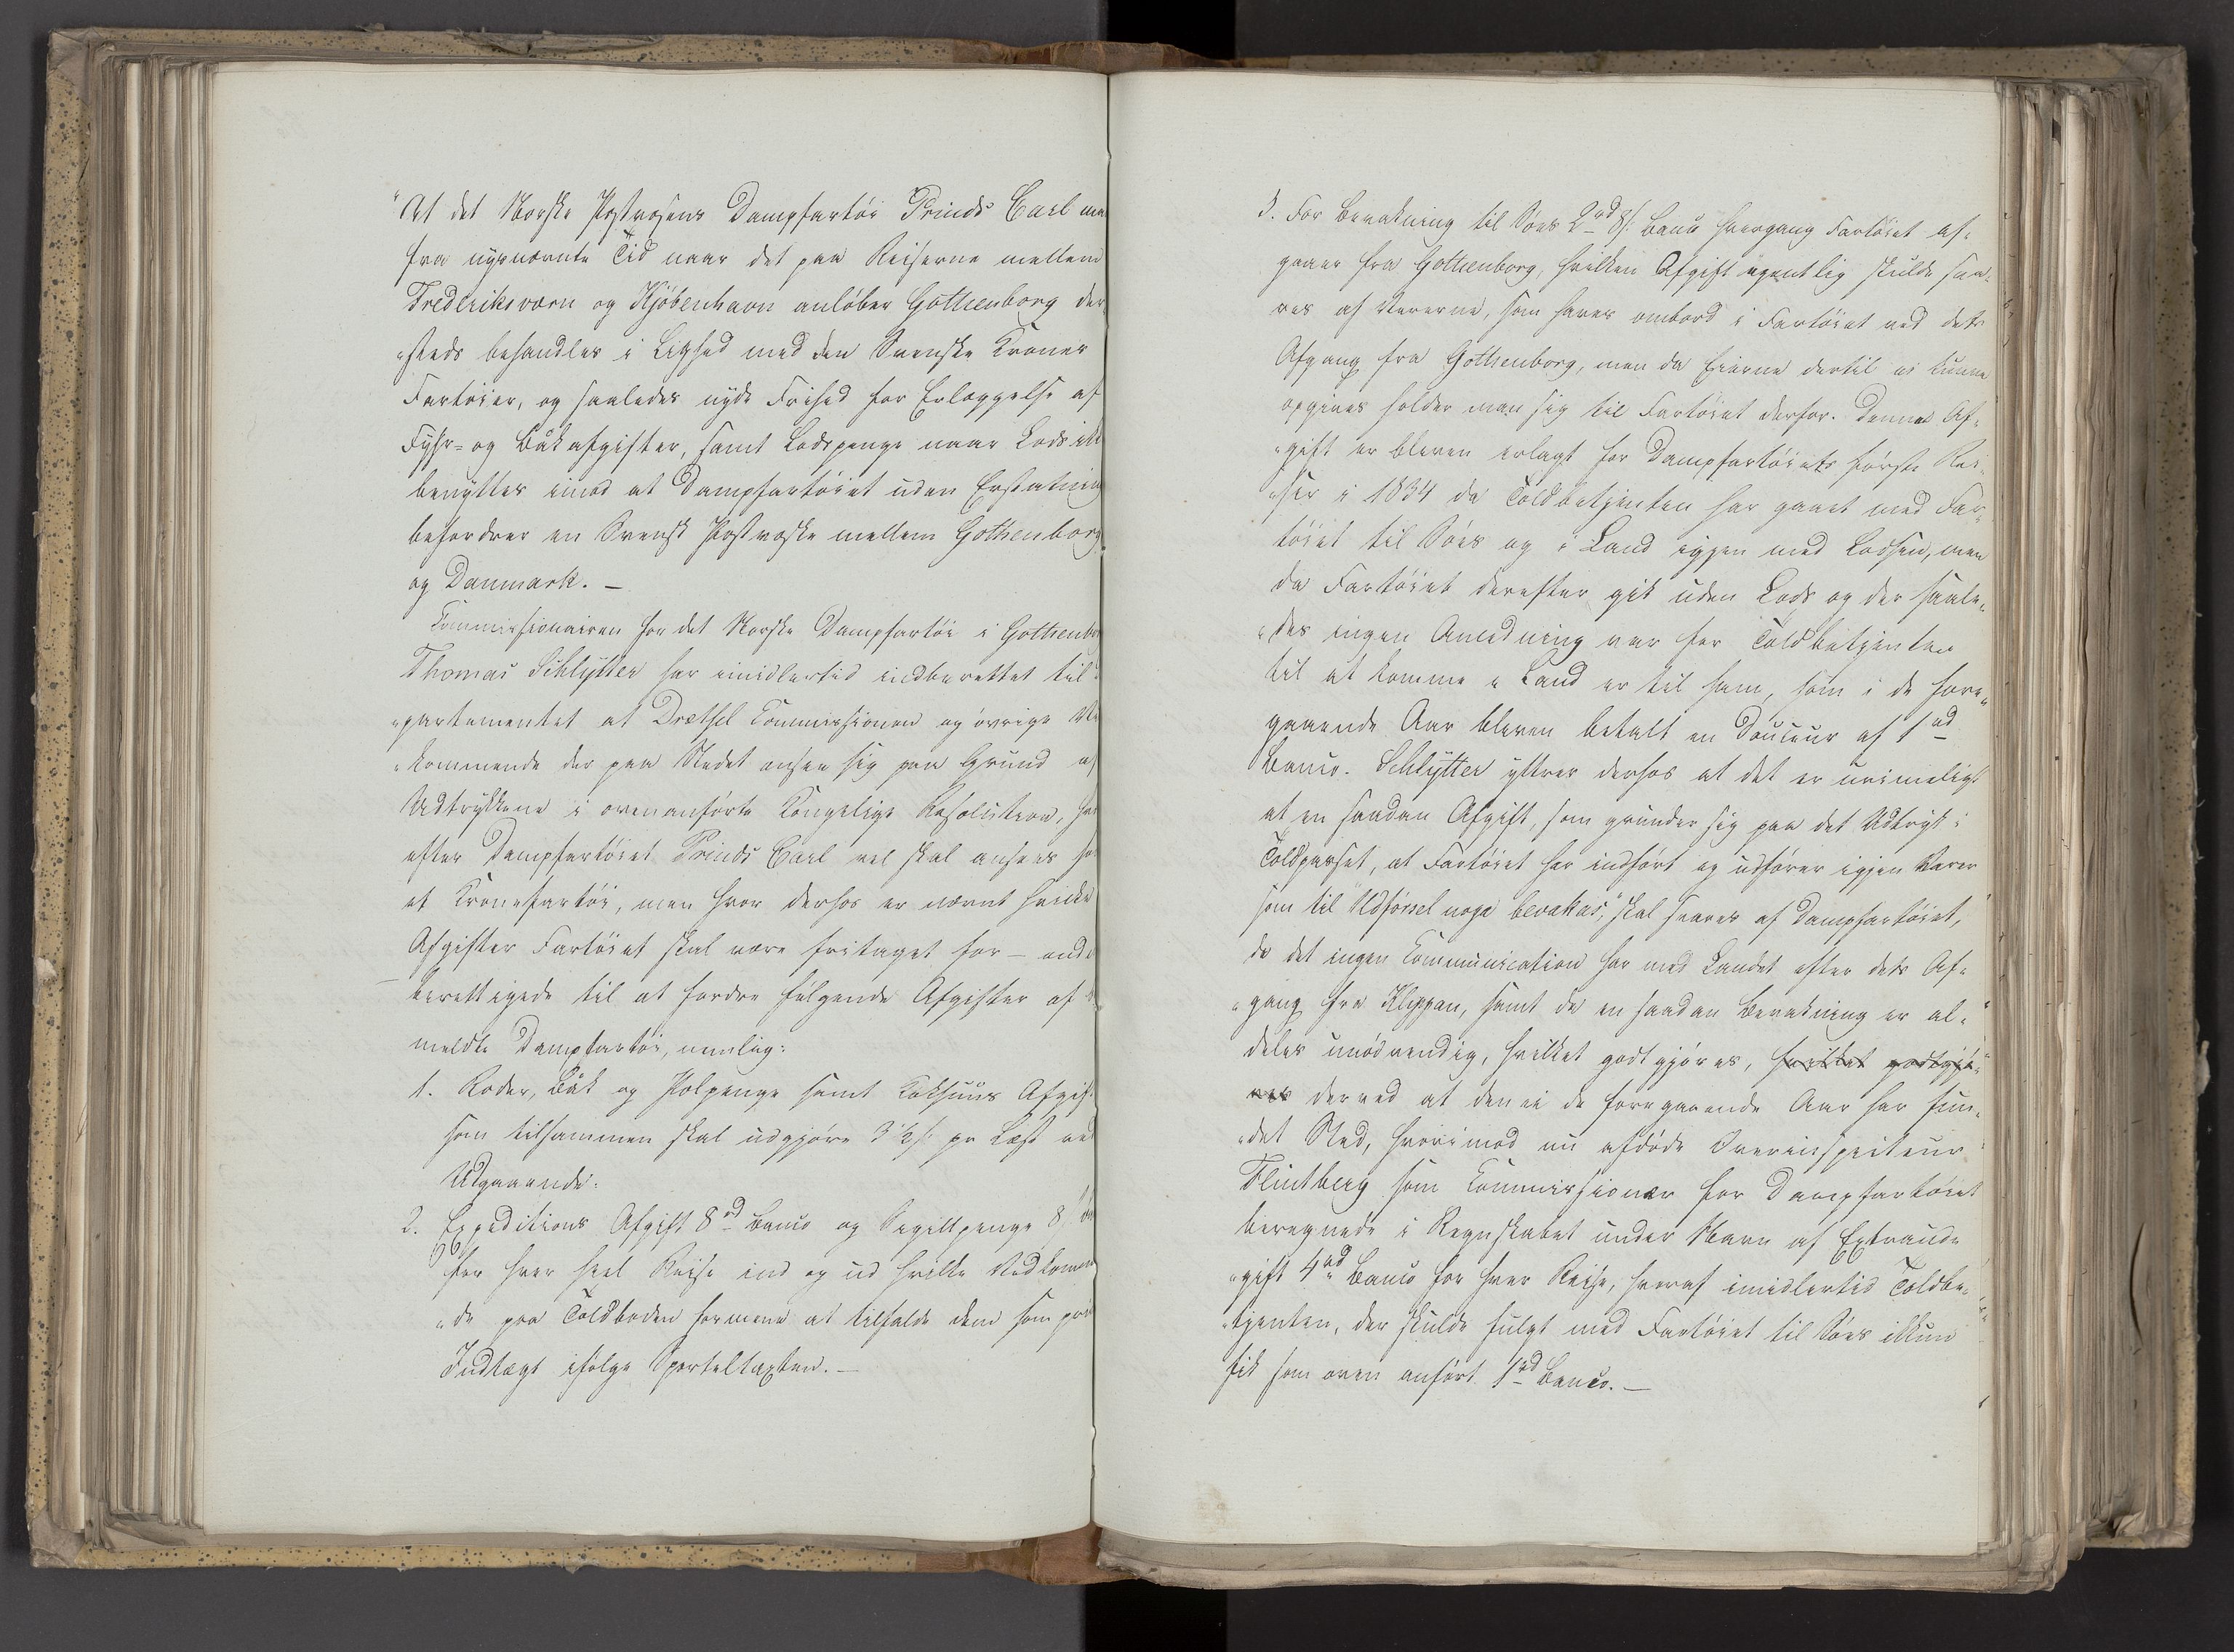 "At det Norske Postvæsens Dampfartøi Prinds Carl maa
fra nysnævnte Tid naar det paa Reiserne mellem
Frederiksværn og Kjøbenhavn anløber Gothenborg der„
„steds behandles i Lighed med den Svenske Krones
Fartøier, og saaledes nyde Frihed for Erlæggelse af
Fyhr- og Båkafgifter, samt Lodspenge naar Lods ikke
benyttes imod at Dampfartøiet uden Erstatning
befordrer en Svensk Postvæske mellem Gothenborg
og Danmark. —
Commissionairen for det Norske Dampfartøi i Gothenborg
Thomas Schlytter har imidlertid indberettet til
„partementet at Drætsel Commissionen og øvrige Ved
„kommende der paa Stedet ansee sig paa Grund af
Udtrykkene i ovenanførte Kongelige Resolution, hvor
efter Dampfartøiet Prinds Carl vel skal ansees som
et Kronefartøi, men hvor derhos er nævnt hvilke
Afgifter Fartøiet skal være fritaget for —
berettigede til at fordre følgende Afgifter af
meldte Dampfartøi, nemlig:
1. Roder, Båk og Polpenge samt Afgift
som tilsammen skal udgjøre 3½ s: pr Læst ved
Udgaaende.
2. Expeditions Afgift 8 rd Banco og Sigillpenge 8 s:
for hver heel Reise ind og ud hvilke Vedkommen
„de paa Toldboden formene at tilfalde dem som
Indtægt ifølge Sporteltaxten. —
3. For Bevakning til Søes 2 rd 8 s: Banco hvergang Fartøiet af„
gaaer fra Gothenborg, hvilken Afgift egentlig skulde sva„
res af Varerne, som haves ombord i Fartøiet ved dets
Afgang fra Gothenborg, men da Eierne dertil ei kunne
opgives holder man sig til Fartøiet derfor. Denne Af„
„gift er bleven erlagt for Dampfartøiets første Rei„
„ser i 1834 da Toldbetjenten har gaaet med Far„
tøiet til Søes og i Land igjen med Lodsen, men
da Fartøiet derefter gik uden Lods og der saale„
„des ingen Anledning var for Toldbetjenten
til at komme i Land er til ham, som i de fore„
gaaende Aar bleven betalt en Douceur af 1 rd
Banco. Schlytter yttrer derhos at det er urimeligt
at en saadan Afgift, som grunder sig paa det Udtryk i
Toldpasset, at Fartøiet har indført og udfører igjen Varer
som til "Udførsel noga bevakas," skal svares af Dampfartøiet,
da det ingen Communication har med Landet efter dets Af„
„gang fra Klippan, samt da en saadan Bevakning er al„
deles unødvendig, hvilket godtgjøres, hvilket godtgjø„
res derved at den ei de foregaaende Aar har fun„
„det Sted, hvorimod nu afdøde Overinspecteur
Flintberg som Commissionær for Dampfartøiet
beregnede i Regnskabet under Navn af Extraud
„gift 4 rd Banco for hver Reise, hvoraf imidlertid Toldbe„
„tjenten, der skulde fulgt med Fartøiet til Søes ikkun
fik som oven anført 1 rd Banco. —